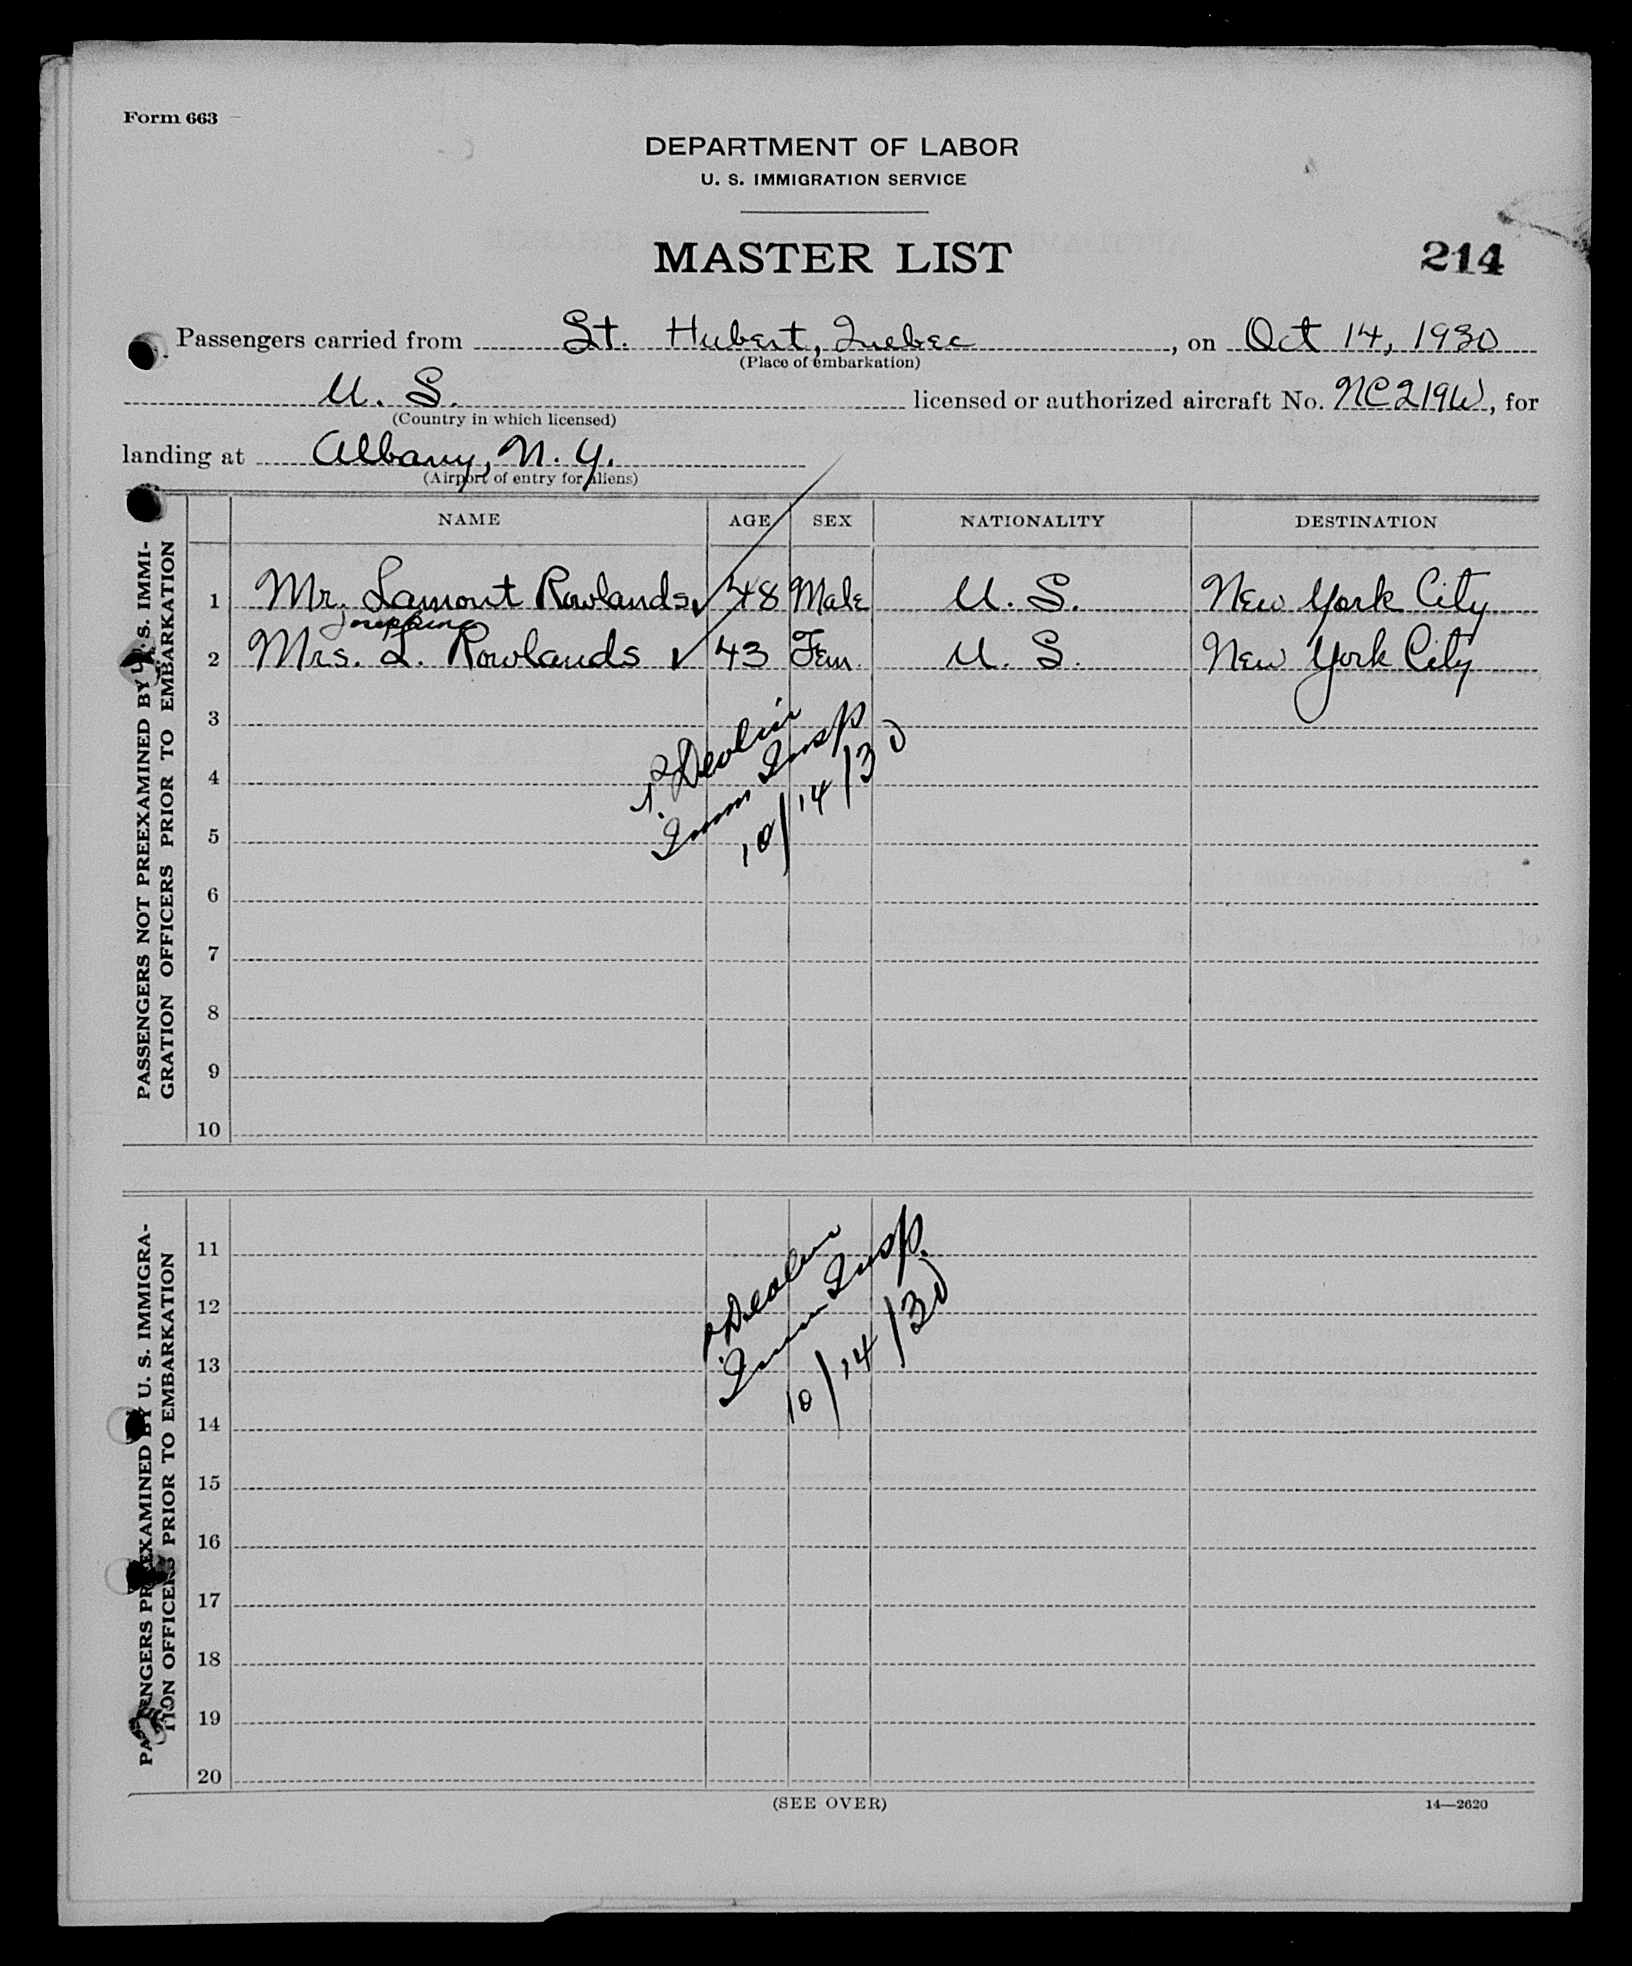 Form 663
DEPARTMENT OF LABOR
U. S. IMMIGRATION SERVICE
MASTER LIST
214
Passengers carried from St. Hubert, Quebec, on Oct 14, 1930
(Place of embarkation)
U. S. licensed or authorized aircraft No. NC219W, for
(Country in which licensed)
landing at Albany, N. Y.
(Airport of entry for aliens)
NAME AGE SEX NATIONALITY DESTINATION
PASSENGERS NOT PREEXAMINED BY U. S. IMMI-
GRATION OFFICERS PRIOR TO EMBARKATION
1 Mr. Lamont Rowlands ✓ 48 Male U. S. New York City
Josephine
2 Mrs. L. Rowlands ✓ 43 Fem. U. S. New York City
3
4
5
6
7
8
9
10
Devlin
Imm Insp
10/14/30
PASSENGERS PREEXAMINED BY U. S. IMMIGRA-
TION OFFICERS PRIOR TO EMBARKATION
11
12
13
14
15
16
17
18
19
20
Devlin
Imm Insp.
10/14/30
(SEE OVER)
14—2620